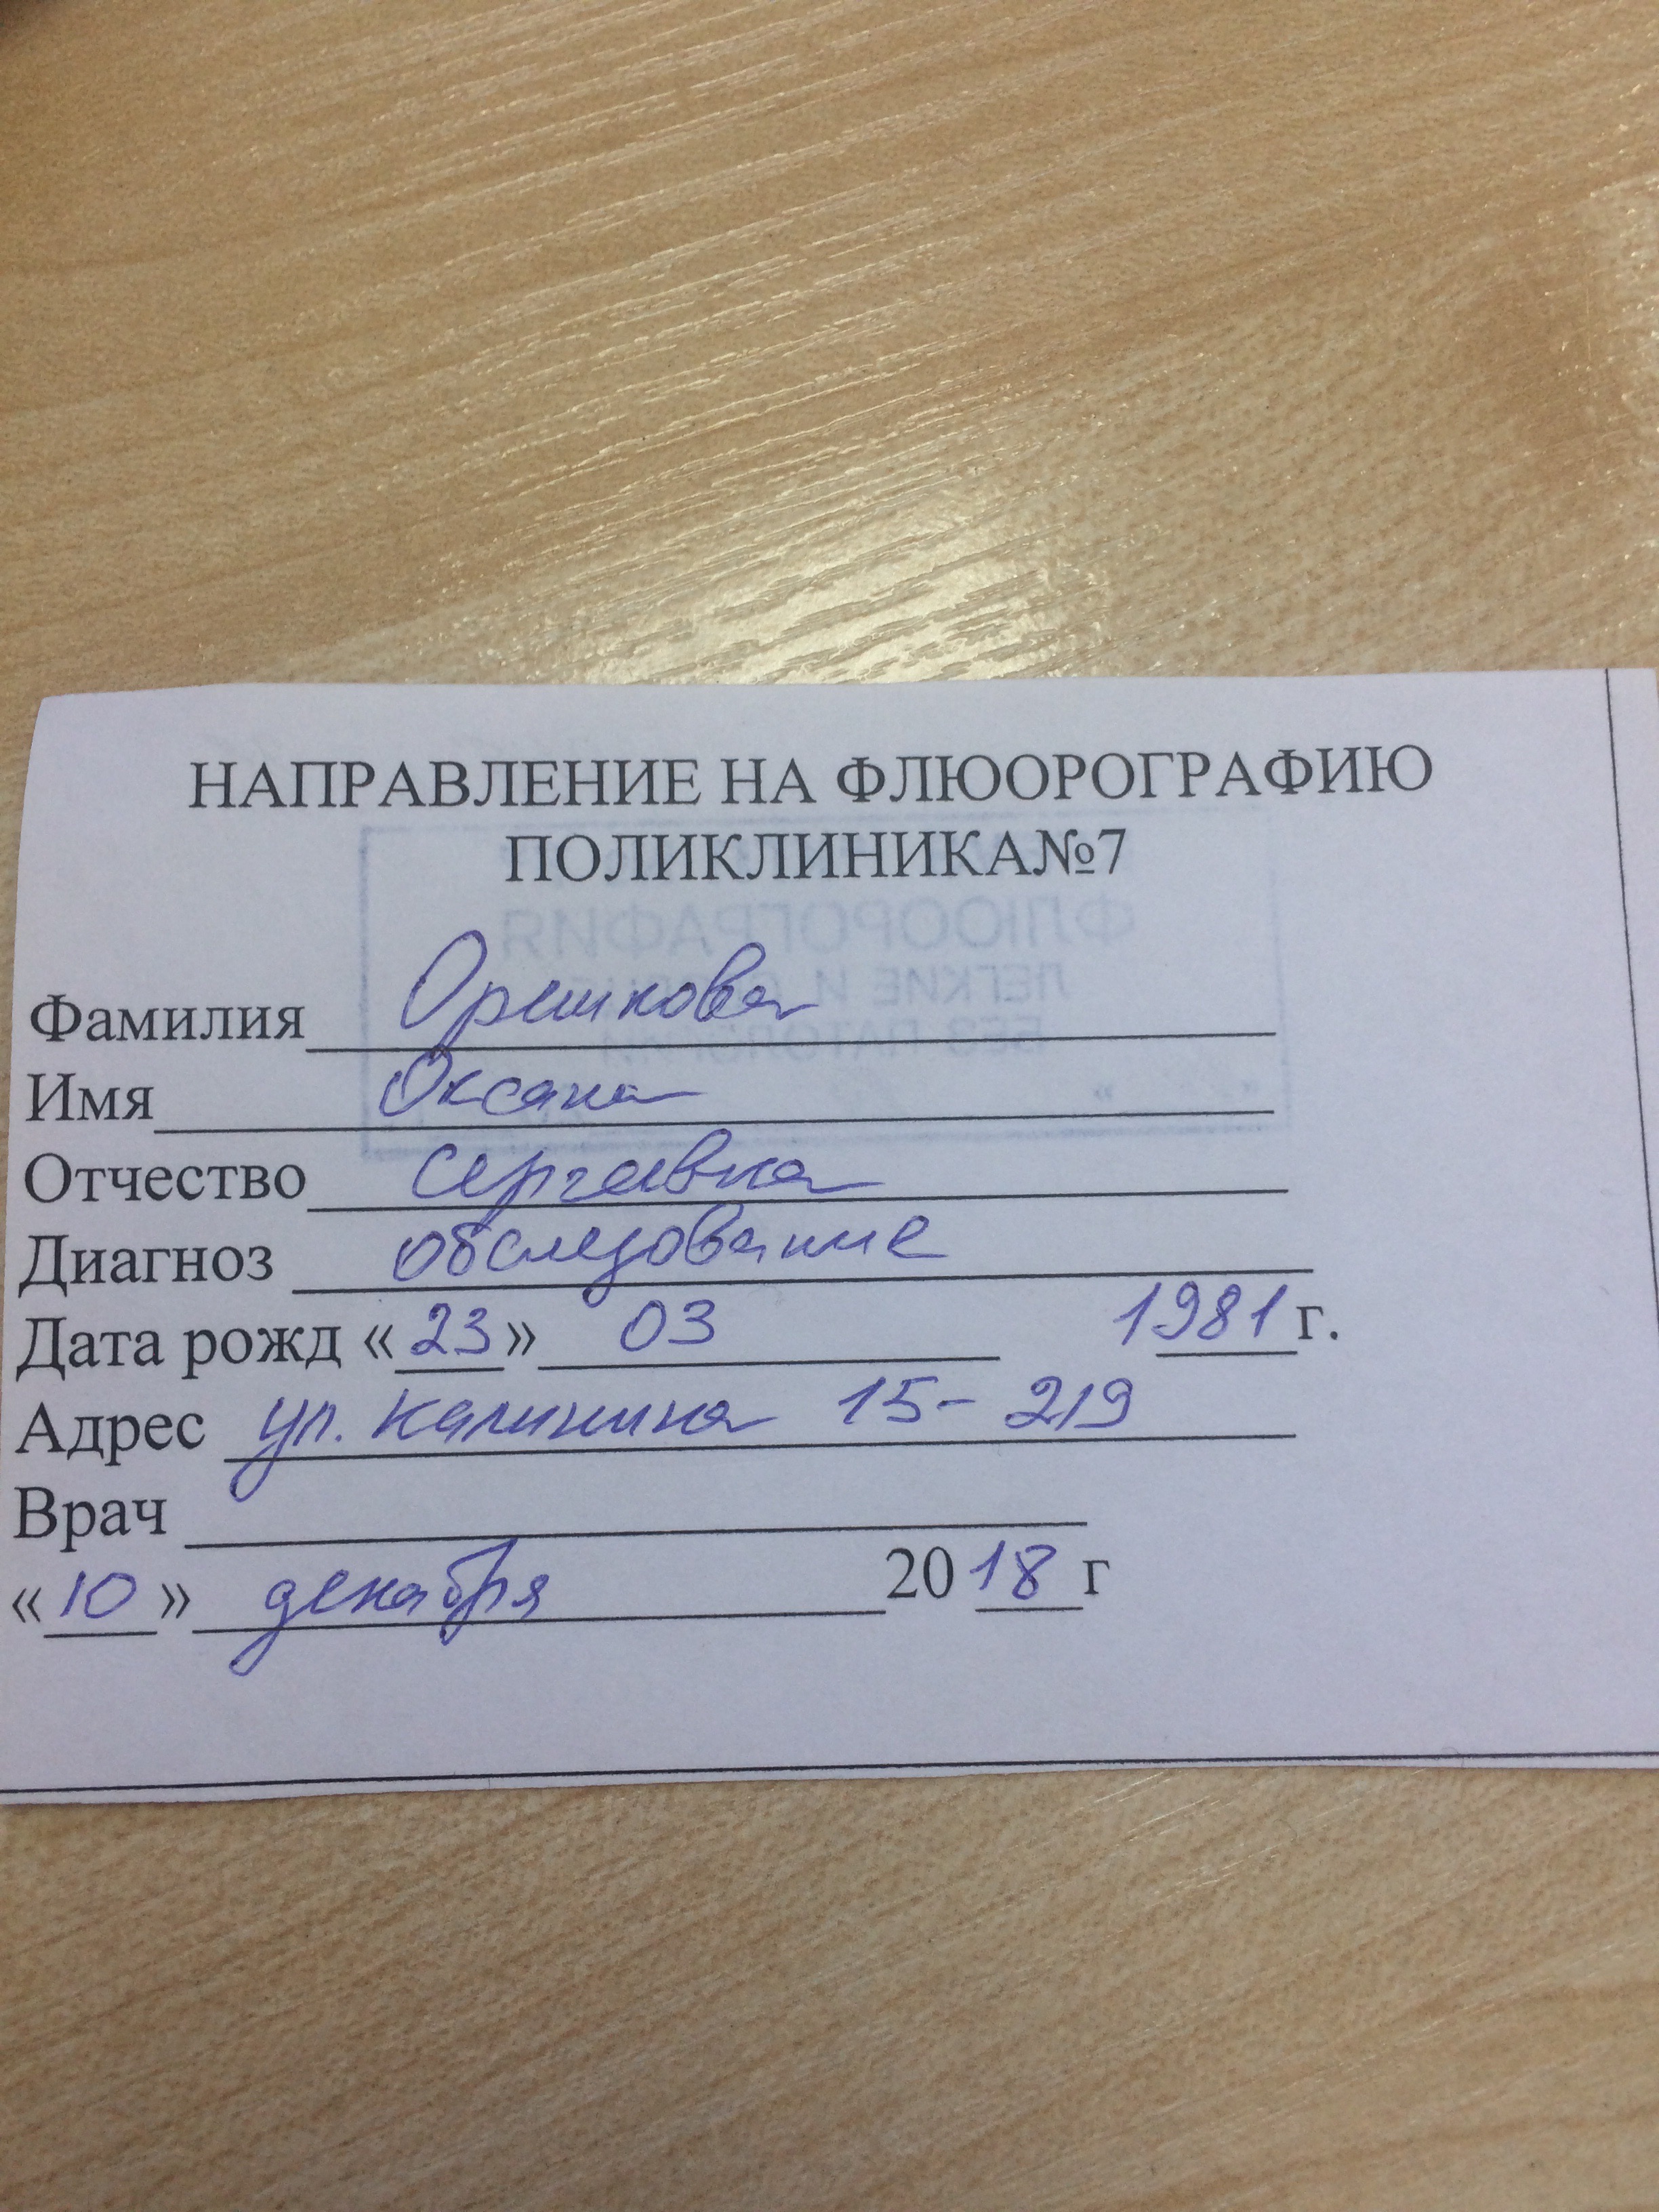 НАПРАВЛЕНИЕ НА ФЛЮОРОГРАФИЮ
ПОЛИКЛИНИКА№7
Фамилия Орешкова
Имя Оксана
Отчество Сергеевна
Диагноз обследование
Дата рожд «23» 03 1981г.
Адрес ул. Калинина 15- 219
Врач
«10» декабря 2018 г
ФЛЮОРОГРАФИЯ
ЛЕГКИЕ И
БЕЗ ПАТОЛОГИИ